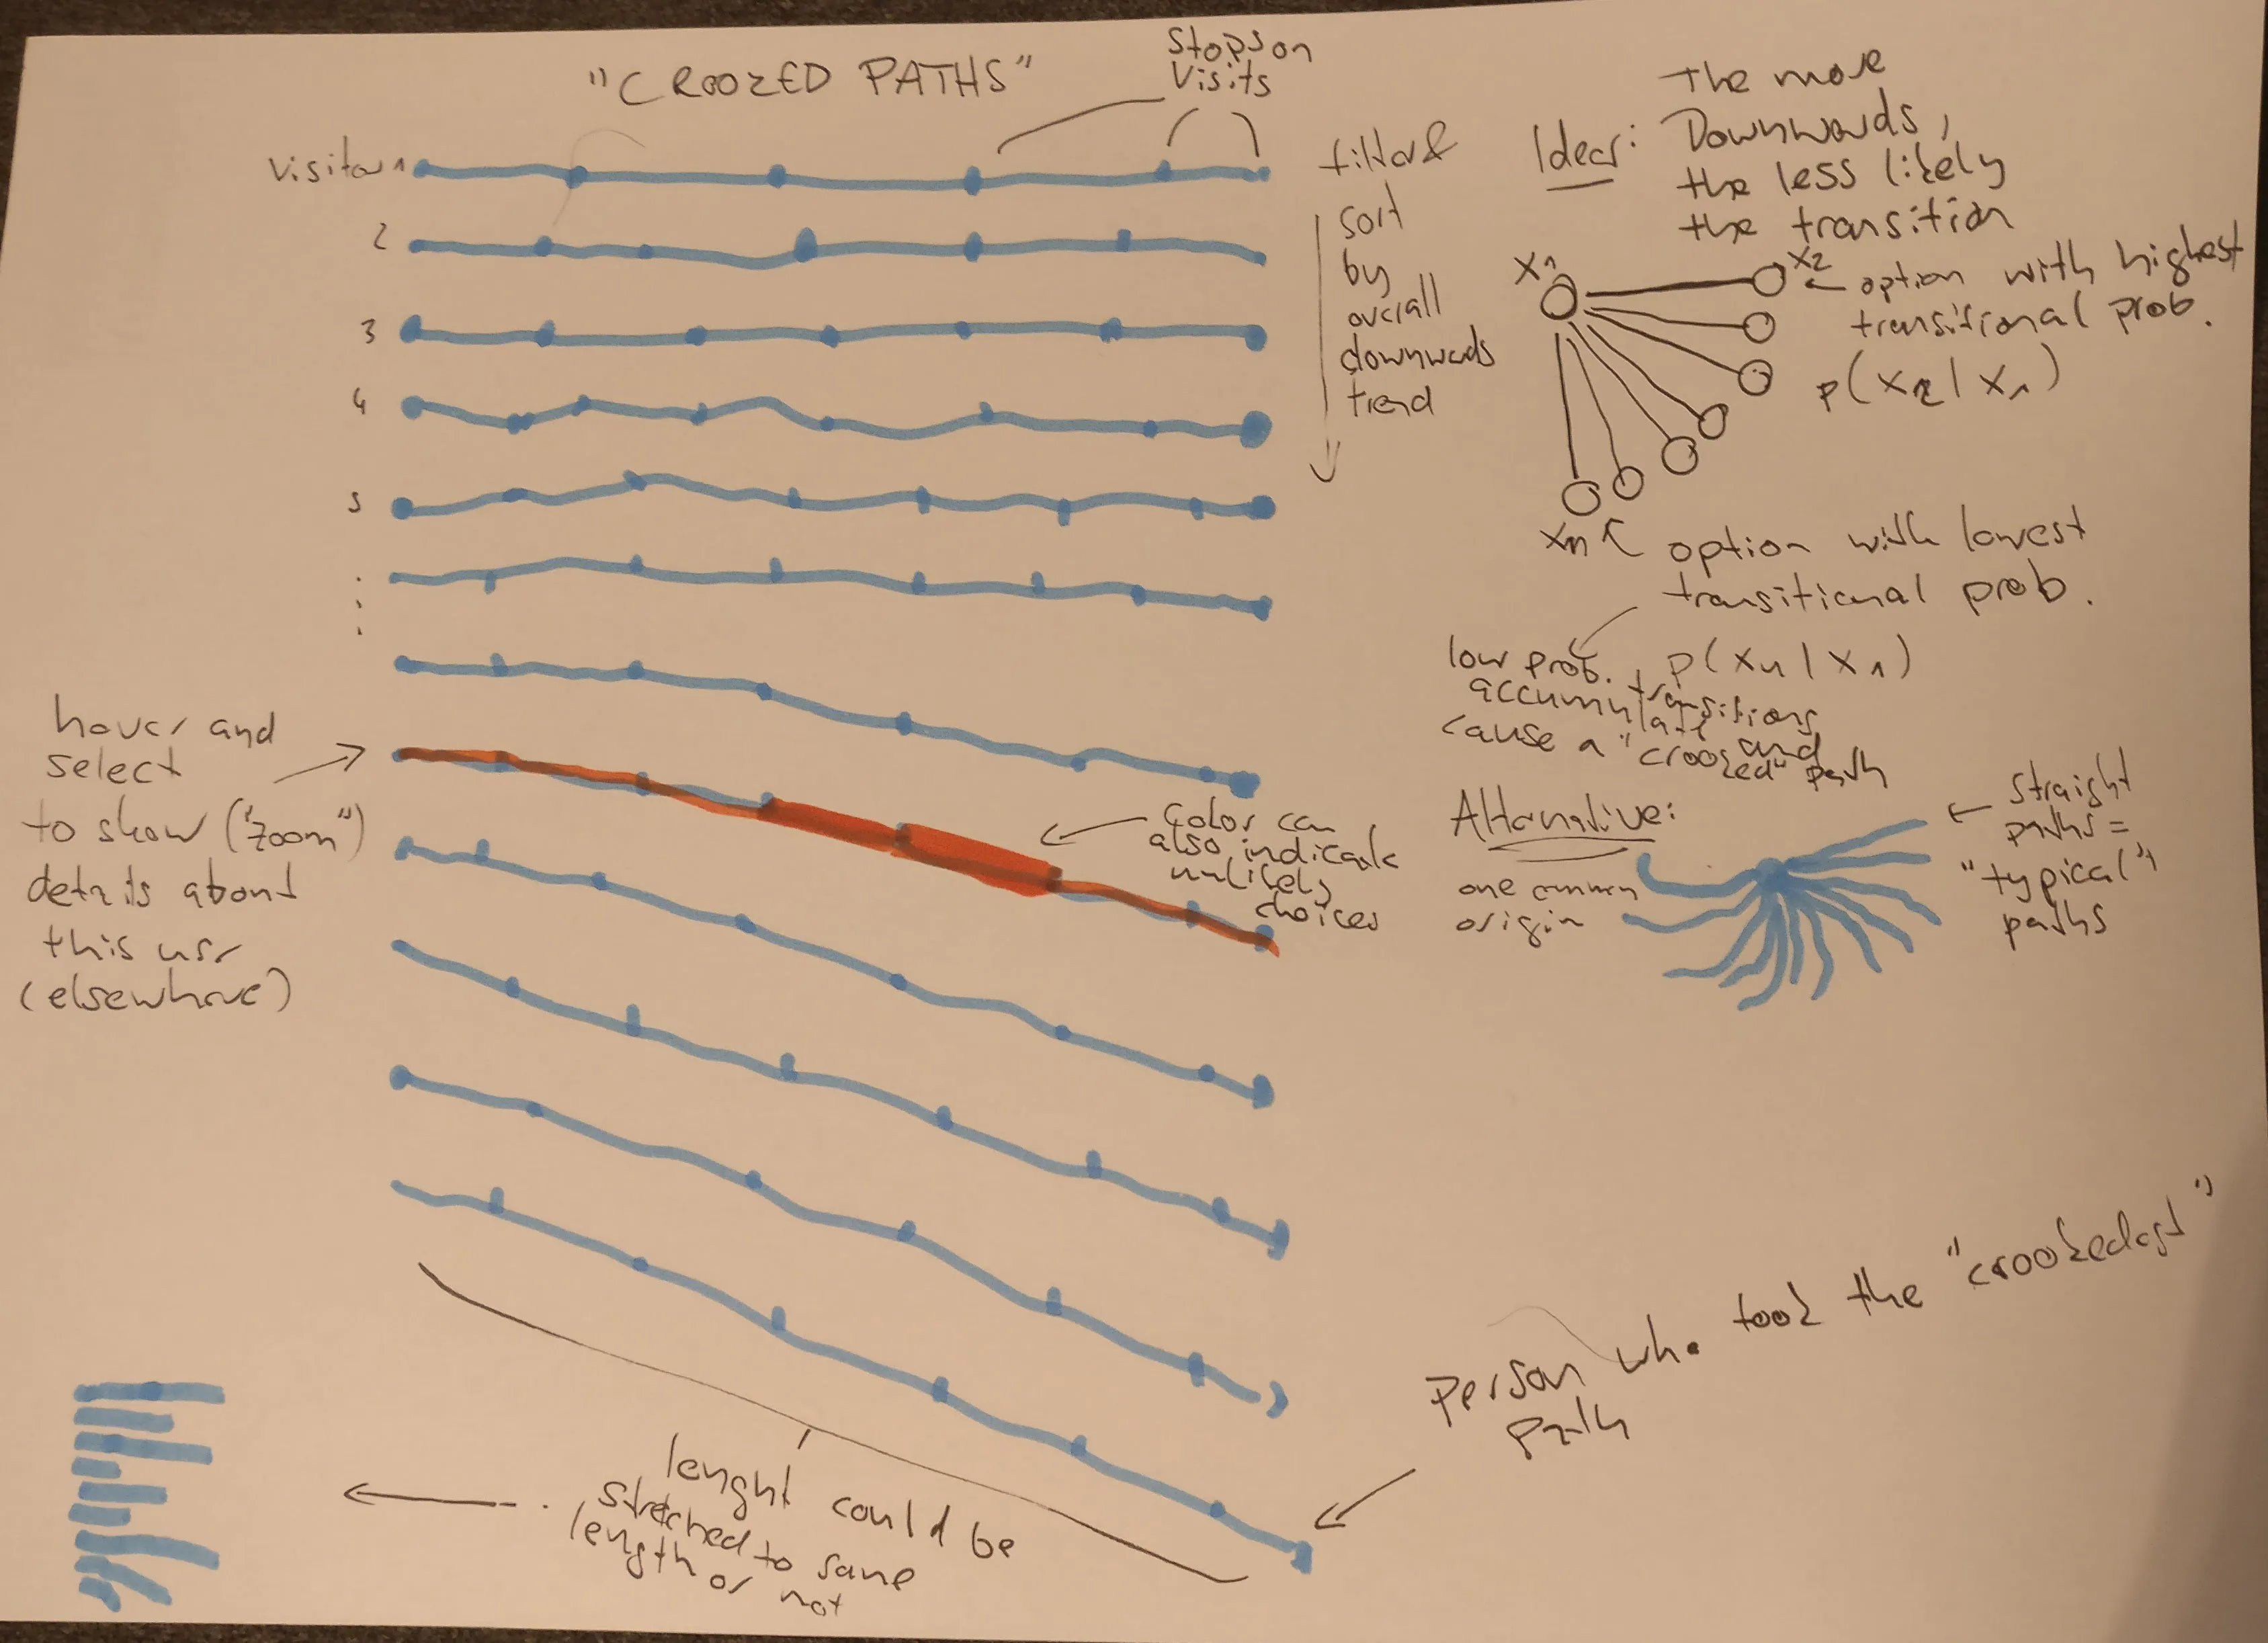 "CROOKED PATHS"
Stops on
Visits
Visitor 1
2
3
4
5
filter &
sort
by
overall
downwards
trend
Idea:
The more
Downwards,
the less likely
the transition
x1
x2
option with highest
transitional prob.
p(x2|x1)
xn
option with lowest
transitional prob.
p(xn|x1)
low prob. transitions
accumulate and
cause a "crooked" path
hover and
select
to show ("zoom")
details about
this usr
(elsewhere)
Color can
also indicate
unlikely
choices
Alternative:
one common
origin
straight
paths =
"typical"
paths
Person who took the "crookedest"
path
lenght could be
stretched to same
length or not